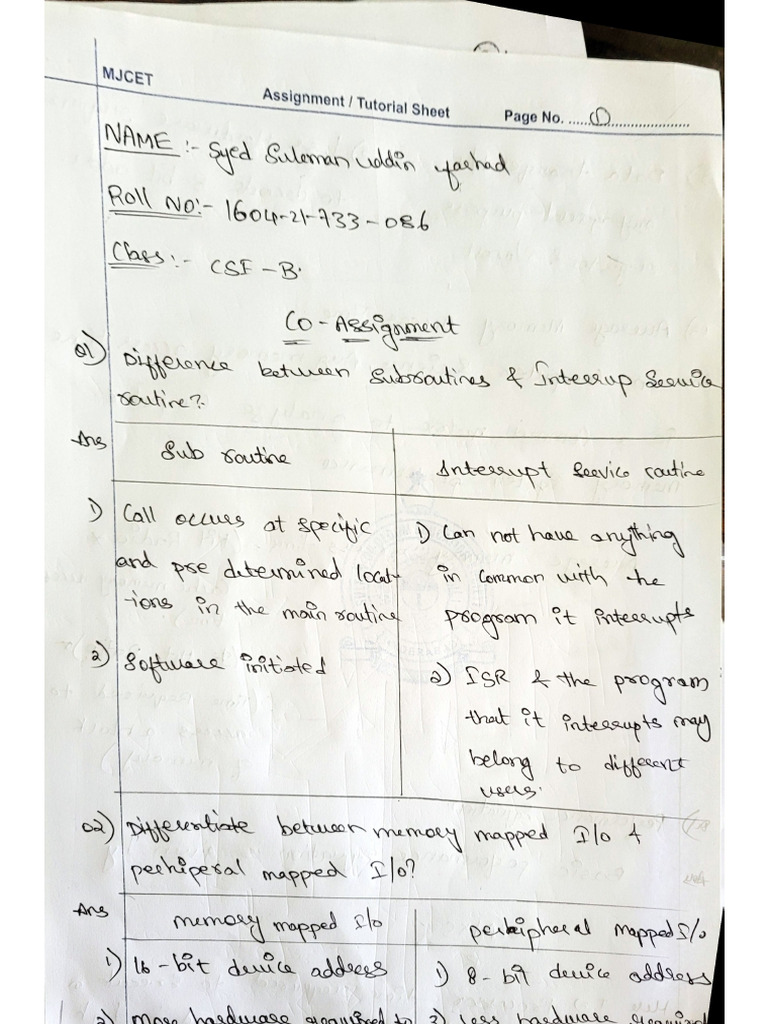 MJCET
Assignment / Tutorial Sheet
Page No. ......1......................
NAME :- Syed Suleman uddin farhad
Roll NO:- 1604-21-733-086
Class :- CSE - B.
CO - Assignment
01) Difference between Subroutines & Interrup Service
routine?
Ans Sub routine Interrupt Service routine
1) Call occurs at specific 1) Can not have anything
and pre determined locat- in common with the
-ions in the main routine program it interrupts
2) Software initiated 2) ISR & the program
that it interrupts may
belong to different
users.
02) Differentiate between memory mapped I/o &
perhiperal mapped I/o?
Ans memory mapped I/o peripheral mapped I/o
1) 16-bit device address 1) 8-bit device address
2) More hardware required to 2) less hardware required